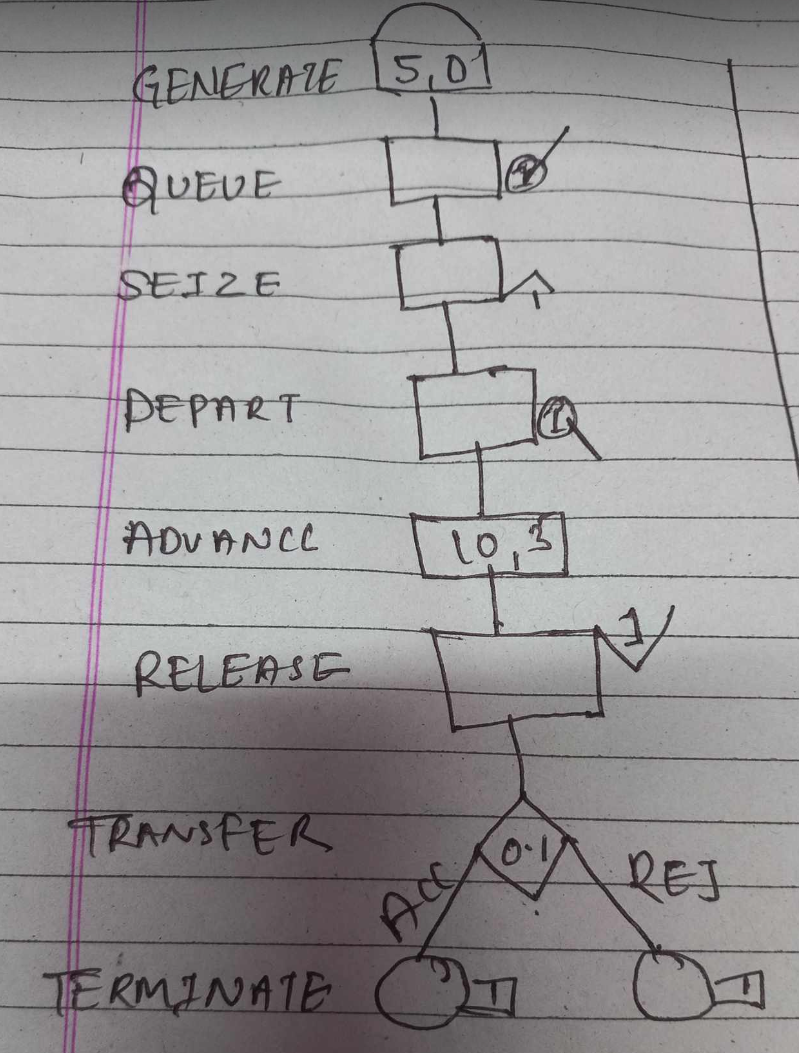 GENERATE 5,0
QUEUE 1
SEIZE 1
DEPART 1
ADVANCE 10,3
RELEASE 1
TRANSFER 0.1
ACC REJ
TERMINATE 1 1